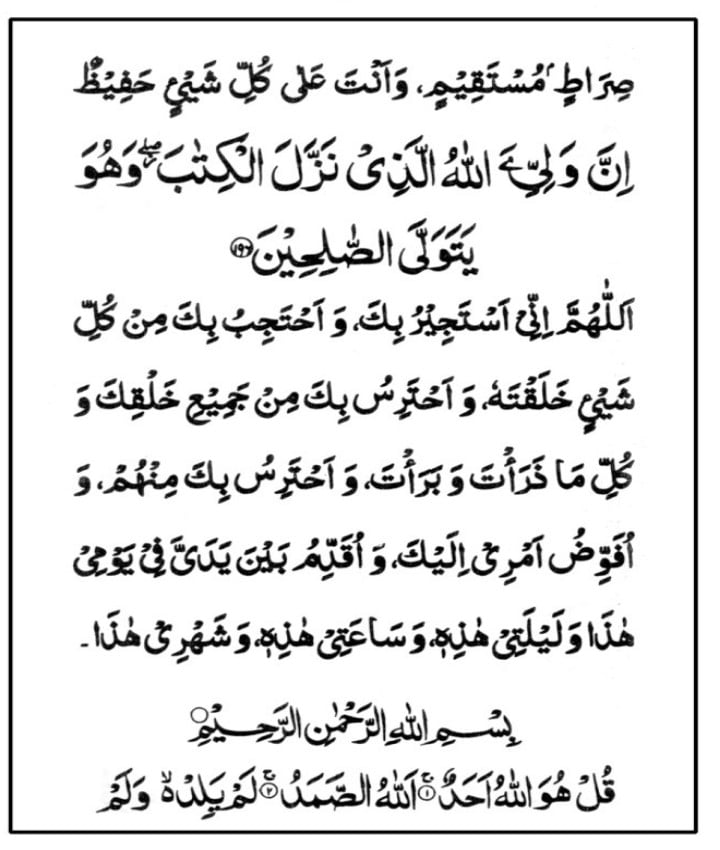 صِرَاطٍ مُّسْتَقِيْمٍ، وَاَنْتَ عَلٰى كُلِّ شَيْئٍ حَفِيْظٌ
اِنَّ وَلِیِّ ۦَ اللّٰهُ الَّذِیْ نَزَّلَ الْكِتٰبَ ۖ وَهُوَ
يَتَوَلَّى الصّٰلِحِيْنَ ﴿۱۹۶﴾
اَللّٰهُمَّ اِنِّيْ اَسْتَجِيْرُ بِكَ، وَ اَحْتَجِبُ بِكَ مِنْ كُلِّ
شَيْئٍ خَلَقْتَهٗ، وَ اَحْتَرِسُ بِكَ مِنْ جَمِيْعِ خَلْقِكَ وَ
كُلِّ مَا ذَرَأْتَ وَ بَرَأْتَ، وَ اَحْتَرِسُ بِكَ مِنْهُمْ، وَ
اُفَوِّضُ اَمْرِيْ اِلَيْكَ، وَ اُقَدِّمُ بَيْنَ يَدَيَّ فِيْ يَوْمِيْ
هٰذَا وَ لَيْلَتِيْ هٰذِهٖ، وَ سَاعَتِيْ هٰذِهٖ، وَ شَهْرِيْ هٰذَا۔
بِسْمِ اللّٰهِ الرَّحْمٰنِ الرَّحِيْمِ ○
قُلْ هُوَ اللّٰهُ اَحَدٌ ۚ﴿۱﴾ اَللّٰهُ الصَّمَدُ ۚ﴿۲﴾ لَمْ يَلِدْ ۙ۬ وَلَمْ